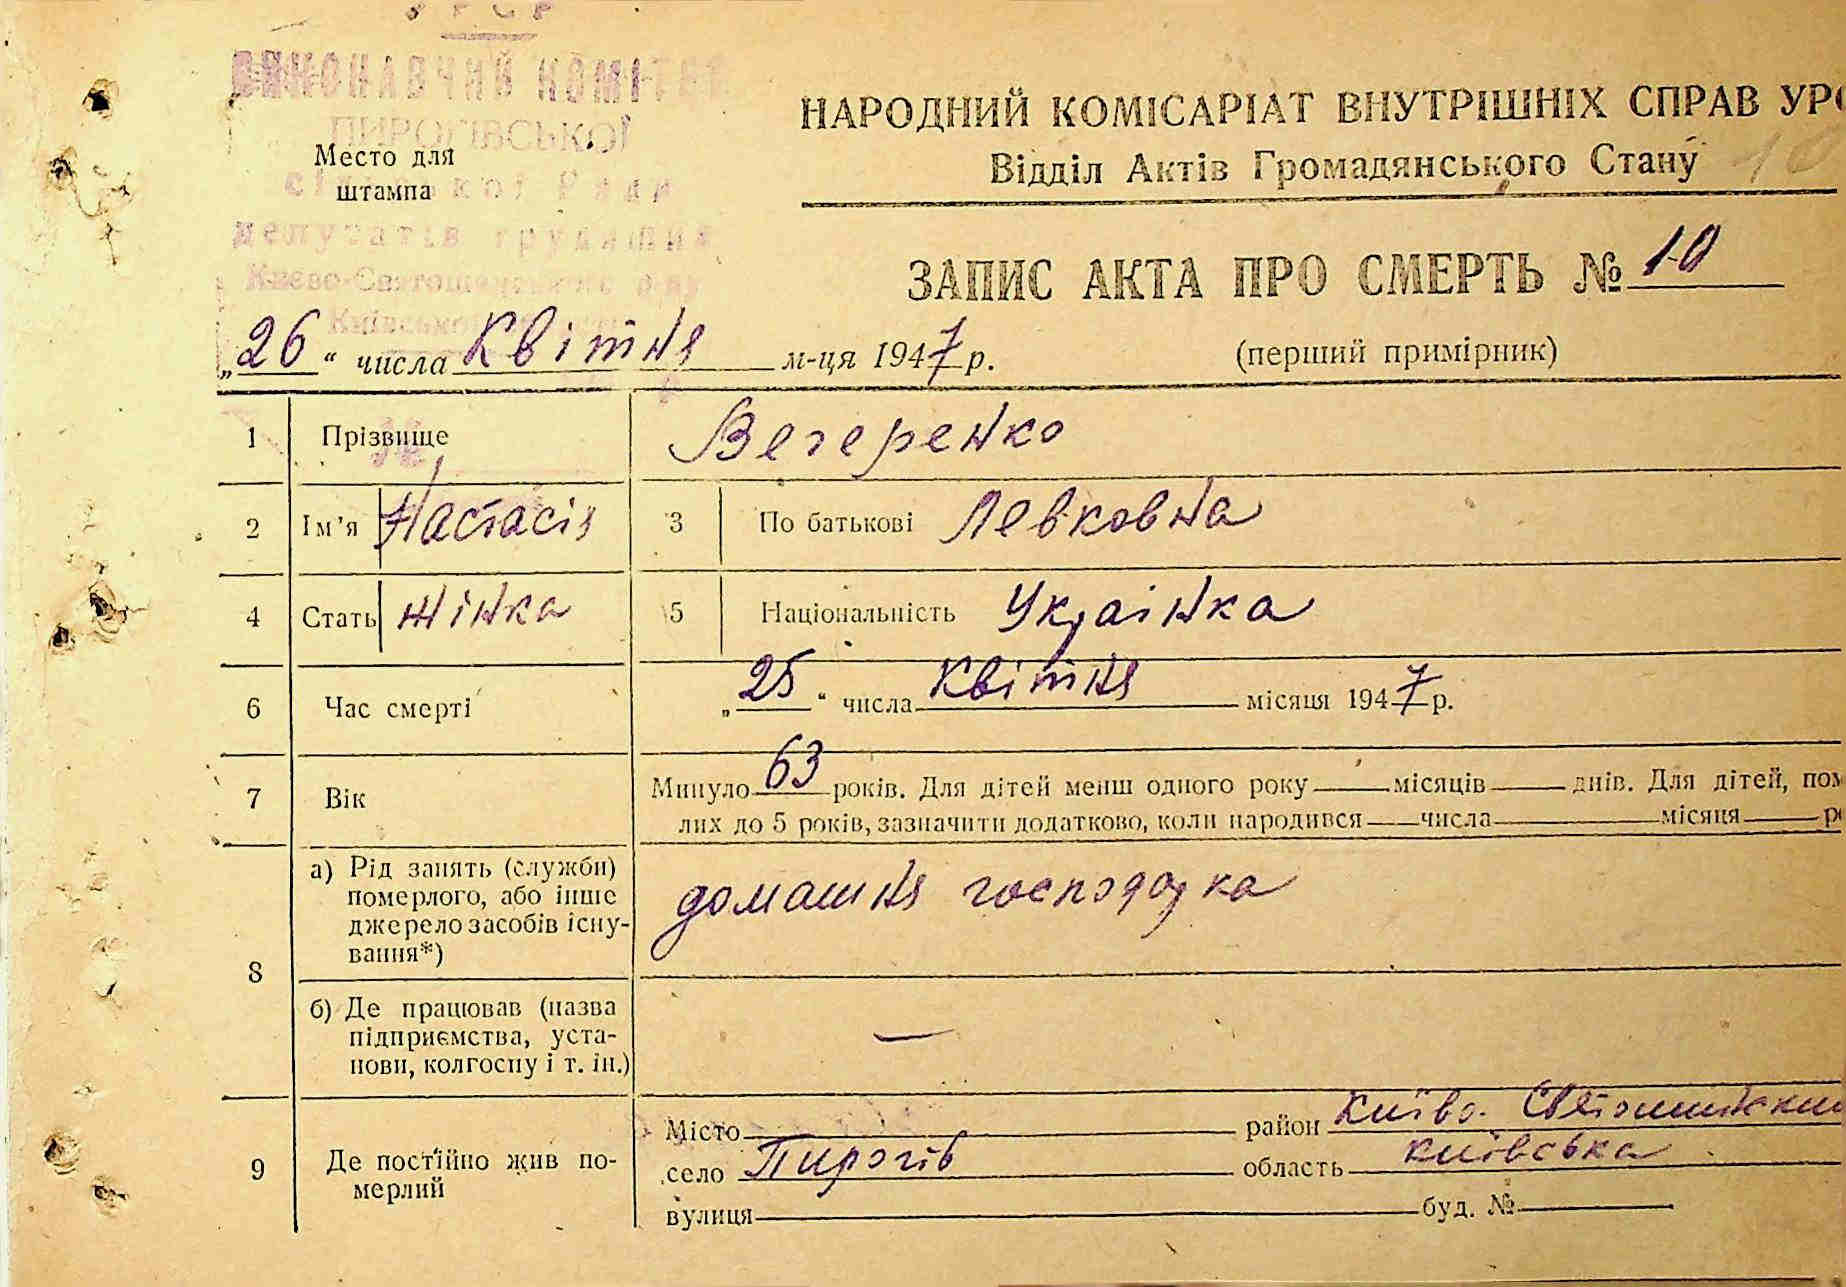 ВИКОНАВЧИЙ КОМІТЕТ
ПИРОГІВСЬКОЇ
сільської Ради
депутатів трудящих
Києво-Святошинського р-ну
Київської
Место для
штампа
НАРОДНИЙ КОМІСАРІАТ ВНУТРІШНІХ СПРАВ УРС
Відділ Актів Громадянського Стану
10
ЗАПИС АКТА ПРО СМЕРТЬ № 10
„26“ числа Квітня м-ця 1947 р.
(перший примірник)
1 Прізвище Вегеренко
2 Ім’я Настасія 3 По батькові Левковна
4 Стать жінка 5 Національність Українка
6 Час смерті „25“ числа квітня місяця 1947 р.
7 Вік Минуло 63 років. Для дітей менш одного року місяців днів. Для дітей, пом
лих до 5 років, зазначити додатково, коли народився числа місяця р
8 а) Рід занять (служби)
померлого, або інше
джерело засобів існу-
вання*)
домашня господарка
б) Де працював (назва
підприємства, уста-
нови, колгоспу і т. ін.)
—
9 Де постійно жив по-
мерлий
Місто район Київо-Святошинский
село Пирогів область київська
вулиця буд. №